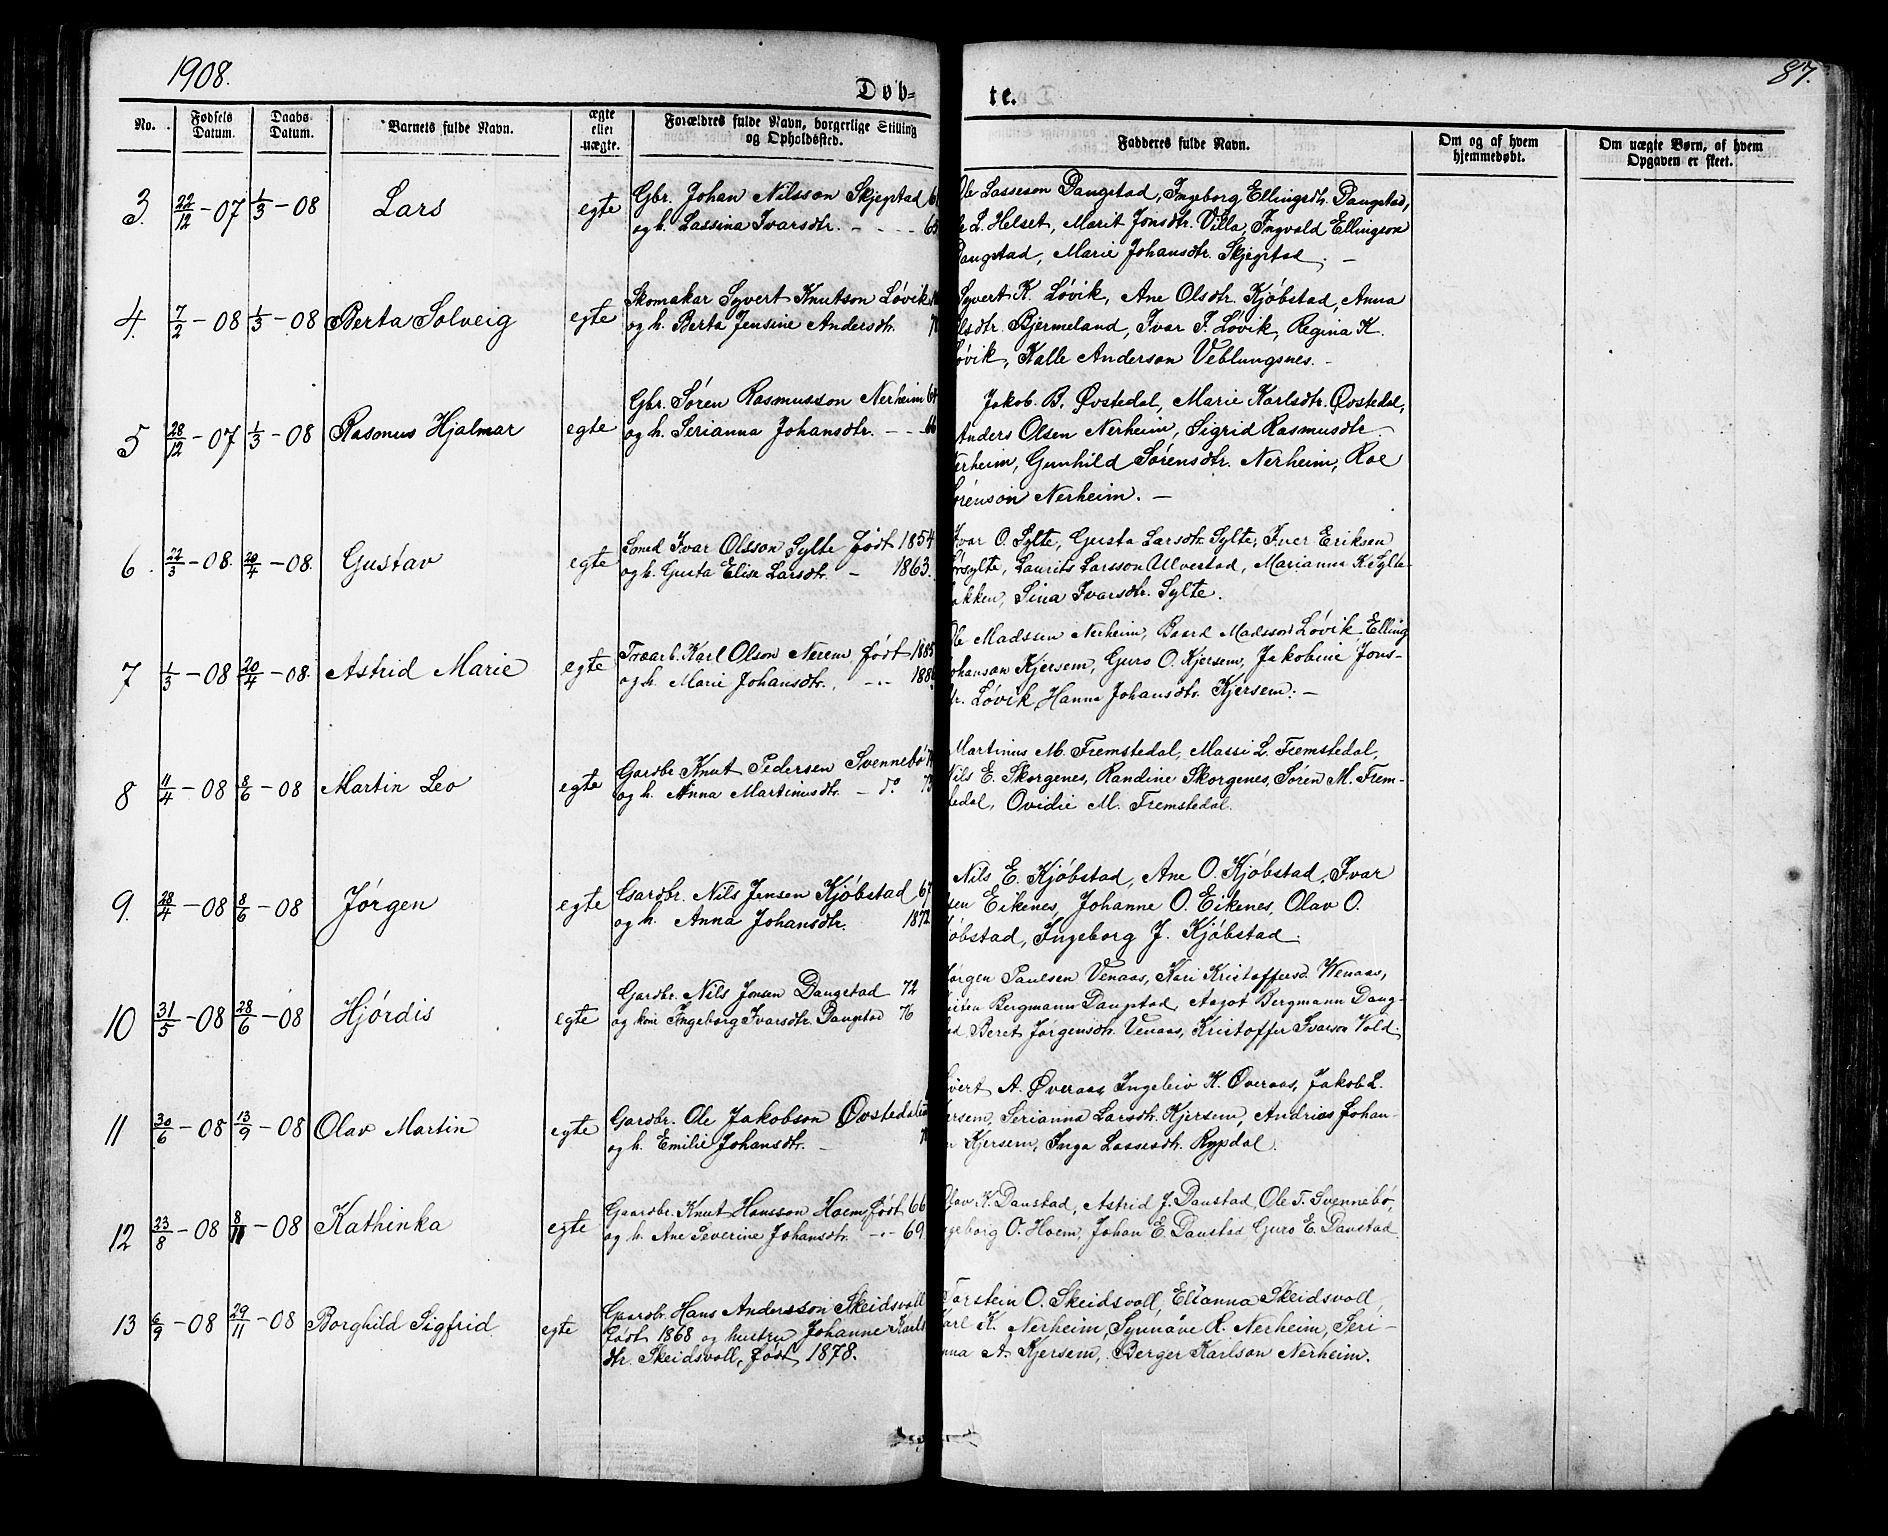 1908.
87.
Døb-
te.
No.
Fødsels Datum.
Daabs Datum.
Barnets fulde Navn.
ægte eller uægte.
Forældres fulde Navn, borgerlige Stilling og Opholdssted.
Fadderes fulde Navn.
Om og af hvem hjemmedøbt.
Om uægte Børn, af hvem Opgaven er skeet.
3. 22/12 - 07 1/3 - 08 Lars egte
Gbr. Johan Nilsson Skjegstad
og h. Lassina Ivarsdtr. - - - 65
Ole Lasseson Daugstad, Ingeborg Ellingsdtr. Daugstad,
L. Helset, Marit Jonsdtr. Villa, Ingvald Ellingson
Daugstad, Marie Johansdtr. Skjegstad. -
4. 7/2 - 08 1/3 - 08 Berta Solveig egte
Skomakar Syvert Knutson Løvik
og h. Berta Jensine Andersdtr.
Syvert K. Løvik, Ane Olsdtr. Kjøbstad, Anna
Olsdtr. Bjermeland, Ivar I. Løvik, Regina K.
Løvik, Kalle Anderson Veblungsnes. -
5 28/12 - 07 1/3 - 08 Rasmus Hjalmar egte
Gbr. Søren Rasmusson Nerheim 64
og h. Serianna Johansdtr. - - - 66
Jakob B. Øvstedal, Marie Karlsdtr. Øvstedal,
Anders Olsen Nerheim, Sigrid Rasmusdtr.
Nerheim, Gunhild Sørensdtr. Nerheim, Roe
Sørenson Nerheim. -
6. 22/3 - 08. 20/4 - 08. Gustav egte
Ivar Olsson Sylte født 1854
og h. Gusta Elise Larsdtr. - 1863.
Ivar O. Sylte, Gusta Larsdtr. Sylte, Iver Eriksen
Laurits Larsson Ulvestad, Marianna K. Sylte-
bakken, Sina Ivarsdtr. Sylte.
7 1/3 - 08 20/4 - 08. Astrid Marie egte
Træarb. Karl Olson Nerem født 1885
og h. Marie Johansdtr. - - - 1886
Ole Madssen Nerheim, Baard Madsson Løvik, Elling
Johanson Kjersem, Guro O. Kjersem, Jakobine Jons-
dtr. Løvik, Hanna Johansdtr. Kjersem. -
8 11/4 - 08 8/6 - 08 Martin Leo egte
Gardbr. Knut Pedersen Svennebø
og h. Anna Martinusdtr. - do
Martinus M. Fremstedal, Massi L. Fremstedal,
Nils E. Skorgenes, Randine Skorgenes, Søren M. Frem-
stedal, Ovidie M. Fremstedal.
9. 28/4 - 08 8/6 - 08 Jørgen egte
Gardbr. Nils Jensen Kjøbstad 67
og h. Anna Johansdtr. 1872
Nils E. Kjøbstad, Ane O. Kjøbstad, Ivar
Eikenes, Johanne O. Eikenes, Olav O.
Kjøbstad, Ingeborg J. Kjøbstad.
10 31/5 - 08 28/6 - 08 Hjørdis egte
Gardbr. Nils Jonsen Daugstad 72
og kone Ingeborg Ivarsdtr. Daugstad 76
Jørgen Paulsen Venaas, Kari Kristoffersd. Wenaas,
Bergmann Daugstad, Aagot Bergmann Daug-
stad, Beret Jørgensdtr. Venaas, Kristoffer Ivarson Vold.
11 30/6 - 08 13/9 - 08 Olav Martin egte
Gardbr. Ole Jakobson Øvstedal
og h. Emilie Johansdtr. -
Sivert A. Øveraas, Ingeleiv K. Øveraas, Jakob L.
Kjersem, Serianna Larsdtr. Kjersem, Andrias Johan-
Kjersem, Inga Lassesdtr. Rypdal.
12 23/8 - 08 8/11 - 08 Kathinka egte
Gaardbr. Knut Hansson Hoem født 66
og h. Ane Severine Johansdtr. - - 69.
Olav K. Daustad, Astrid J. Daustad, Ole T. Svennebø,
Ingeborg O. Hoem, Johan E. Daustad Guro E. Daustad
13 6/9 - 08 29/11 - 08 Borghild Sigfrid egte
Gaardbr. Hans Andersson Skeidsvoll
født 1868 og hustru Johanne Karls
dtr. Skeidsvoll, født 1878.
Torstein O. Skeidsvoll, Elianna Skeidsvoll,
Karl K. Nerheim, Synnøve R. Nerheim, Seri-
anna A. Kjersem, Berger Karlson Nerheim.